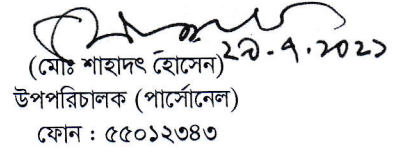 ২৯.৭.২০২১
(মোঃ শাহাদৎ হোসেন)
উপপরিচালক (পার্সোনেল)
ফোন : ৫৫০১২৩৪৩